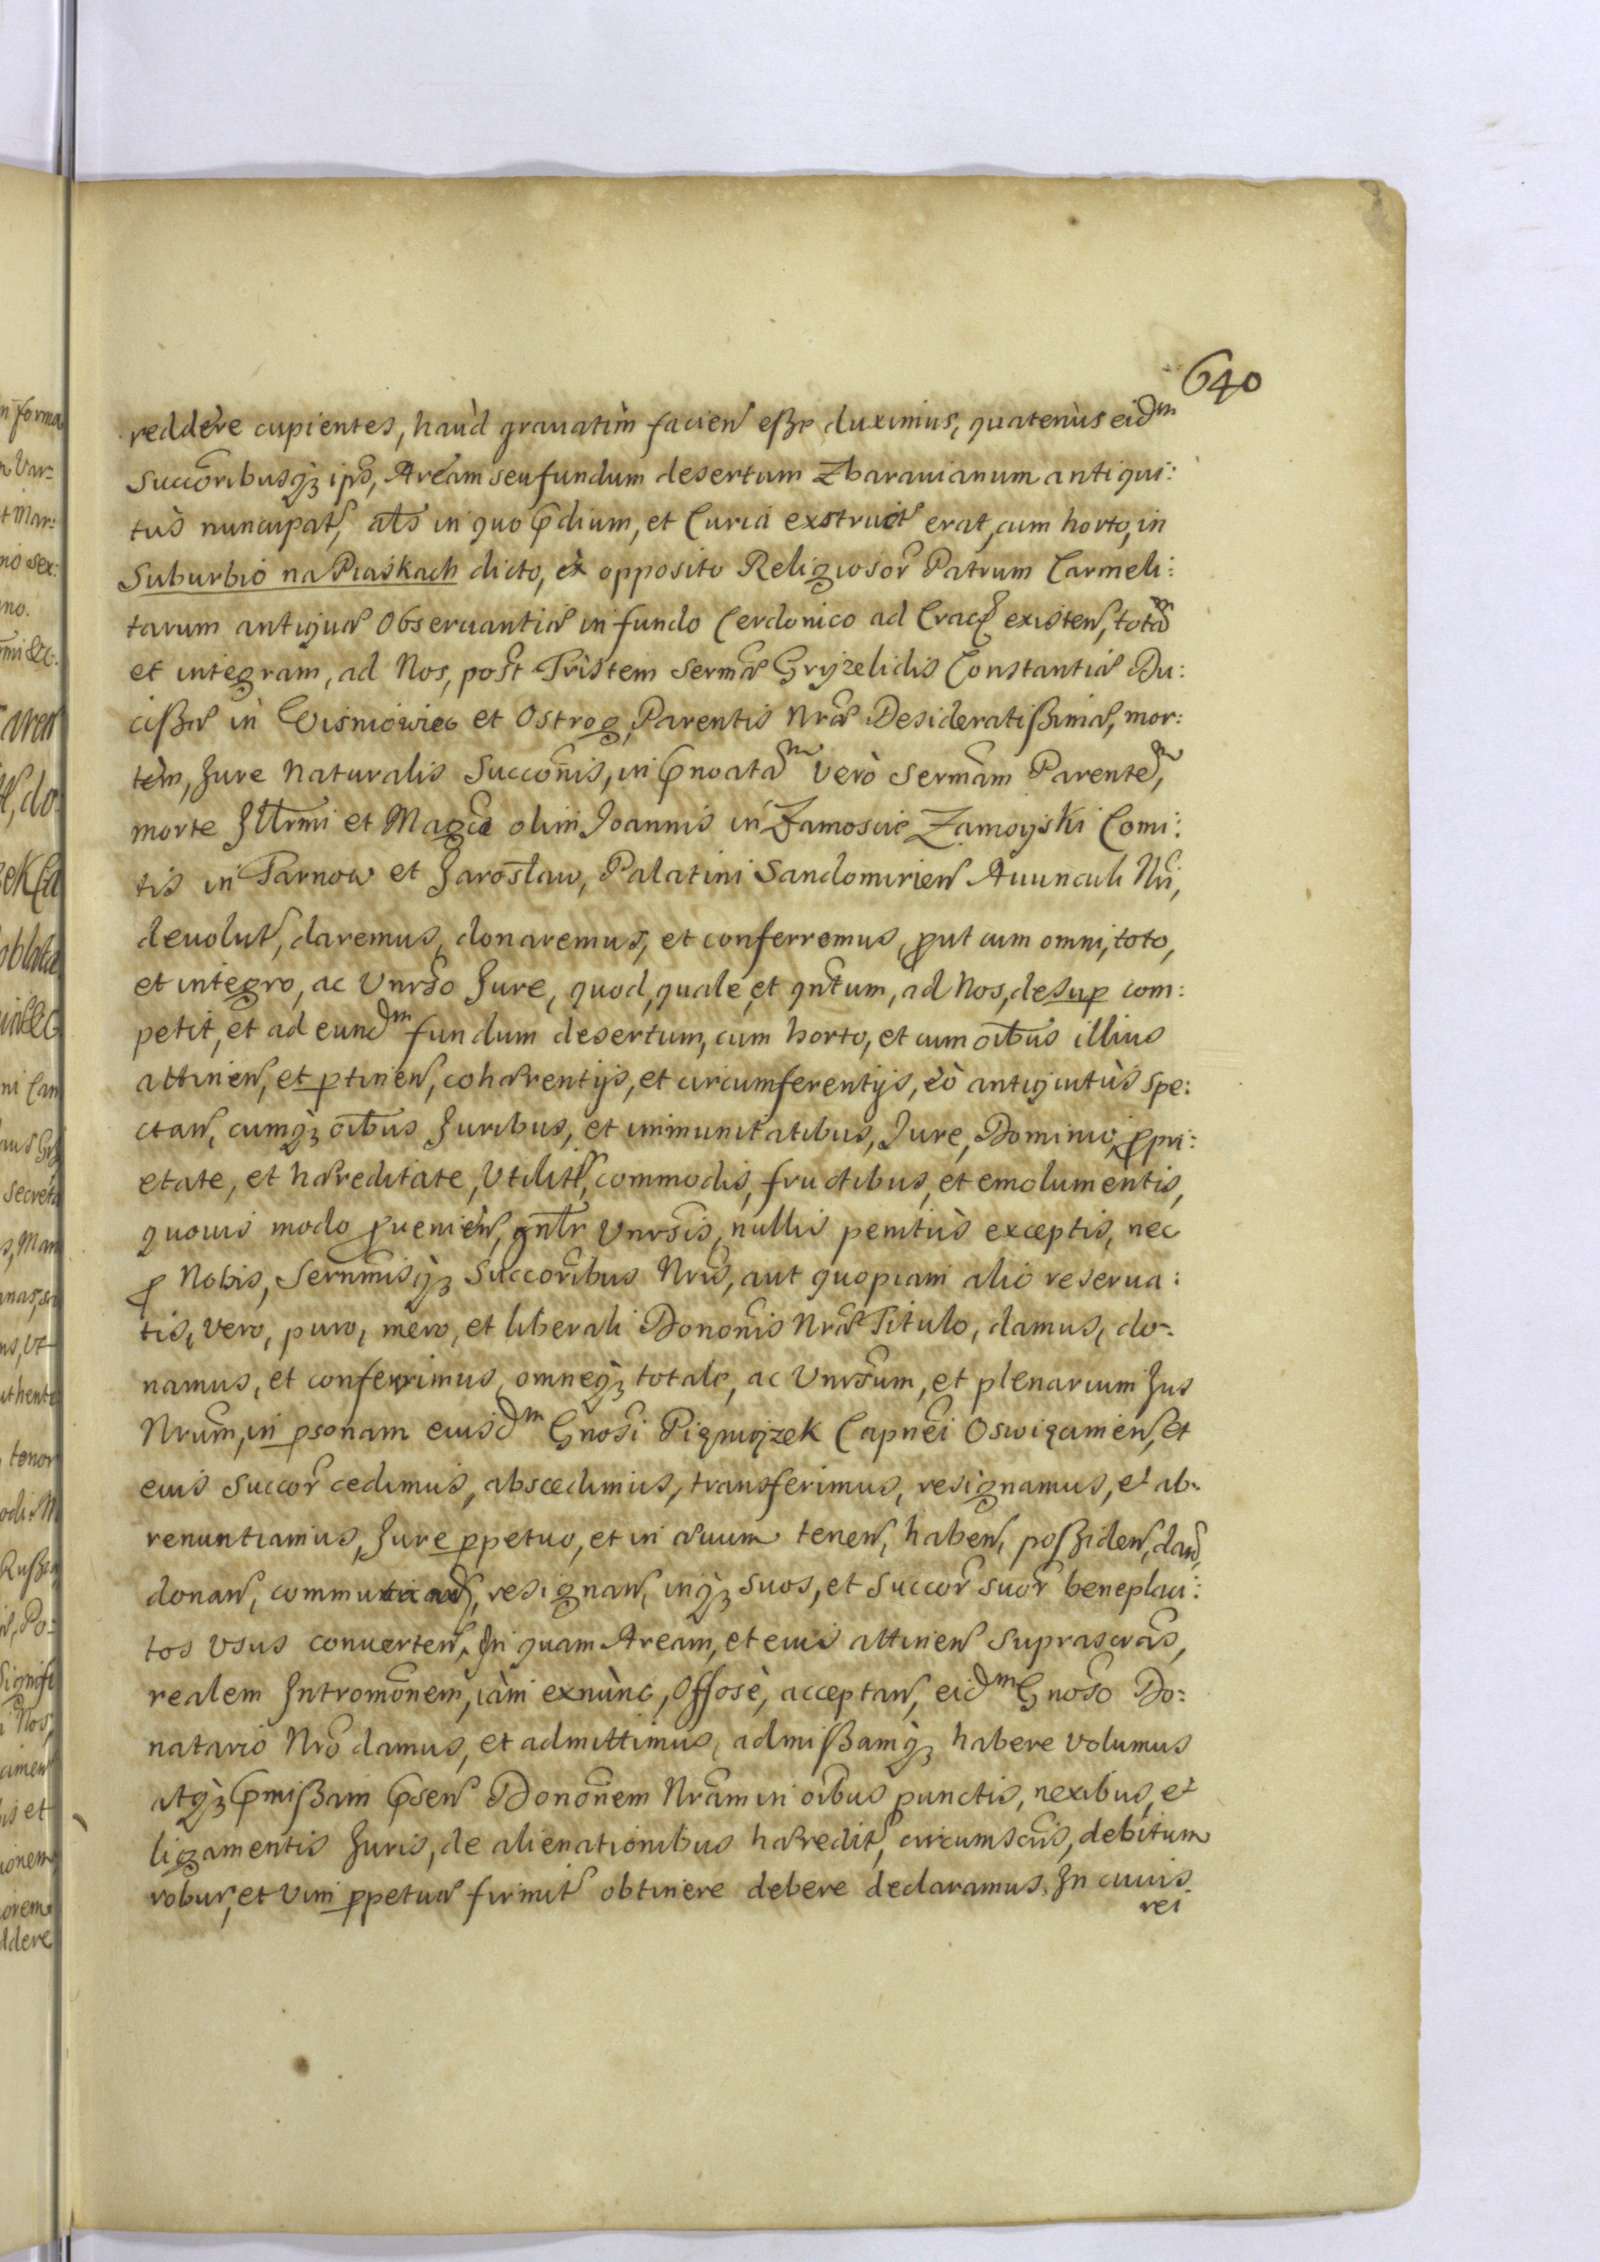 640
reddere cupientes, haùd grauatìm facien̄ eße duximus, quatenùs eid͠m
Succōribusq́ꝫ ip̄s, Aream seu fundum desertum Zbarauianum antiqui:
tùs nuncupat̄, al̄s in quo p̄dium, et Curia exstruct̄ erat, cum horto, in
Suburbio na Piaskach dicto, ex opposito Religiosor̄ Patrum Carmeli:
tarum antiquæ Obseruantiæ in fundo Cerdonico ad Crac̄ existen̄, totā
et integram, ad Nos, post Tristem Serm̄æ Gryzelidis Constantiæ Du:
cißæ in Wisniowiec et Ostrog, Parentis Nr̄æ Desideratißimæ, mor:
tem, Jure Naturalis Succōnis, in p̄noatā verò Serm̄am Parentē,
morte Jll̄rmi et Maḡci olim Joannis in Zamoscie Zamoyski Comi:
tis in Tarnow et Jarosław, Palatini Sandomirien̄ Auunculi Nr̄i,
deuolut̄, daremus, donaremus, et conferremus, ꝓut cum omni, toto,
et integro, ac Vnr̄so Jure, quod, quale, et qn̄tum, ad Nos, desuꝑ com:
petit, et ad eund͠m fundum desertum, cum horto, et cum oībus illius
attinen̄, et ꝑtinen̄, cohærentijs, et circumferentijs, eò antiquitùs spe:
ctan̄, cumq́ꝫ oībus Juribus, et immunitatibus, Jure, Dominio, ꝓpri:
etate, et hæreditate, Vtilit̄, commodis, fructibus, et emolumentis,
quouis modo ꝓuenien̄, gn̄lr Vnr̄sis, nullis penitùs exceptis, nec
ꝓ Nobis, Sern̄misq́ꝫ Succōribus Nr̄is, aut quopiam alio reserua:
tis, vero, puro, mero, et liberali Donōnis Nr̄æ Titulo, damus, do:
namus, et conferrimus, omneq́ꝫ totale, ac Vnr̄sum, et plenarium Jus
Nr̄um, in ꝑsonam eiusd͠m Gn̄osi Pigwyzek Capn̄ei Oswięcimien̄, et
eius Succor̄ cedimus, abscedimus, transferimus, resignamus, et ab:
renuntiamus, Jure ꝑpetuo, et in æuum tenen̄, haben̄, poßiden̄, dan̄,
donan̄, commutan̄, resignan̄, inq́ꝫ suos, et Succor̄ suor̄ beneplaci:
tos vsus conuerten̄. In quam Aream, et eius attinen̄ suprascr̄as,
realem Intromōnem, iàm exnùnc, Offōsè, acceptan̄, eid͠m Gn̄oso Do:
natario Nr̄o damus, et admittimus, admißamq́ꝫ habere volumus
atq́ꝫ p̄mißam p̄sen̄ Donōnem Nr̄am in oībus punctis, nexibus, et
ligamentis Juris, de alienationibus hæredit̄, circumscr̄is, debitum
robur, et Vim ꝑpetuæ firmit̄ obtinere debere declaramus. In cuius
rei